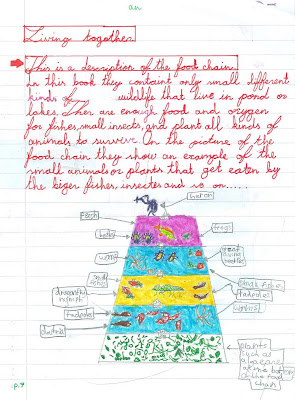 an
Living together
This is a description of the food chain.
In this book they containt only small different
kinds of wildlife that live in pond or
lakes. Ther are enough food and oxygen
for fishes, small insects, and plant all kinds of
animals to survive. On the picture of the
food chain they show an example of the
small animals or plants that get eaten by
the biger fishes, insectes and so on.....
heron
perch
frogs
newts
great
diving
beetles
worms
small
fishes
small fishes
dragonfly
nymph
tadpoles
worms
tadpoles
plants
such as
algae are
at the bottom
of the food
chain
p.7